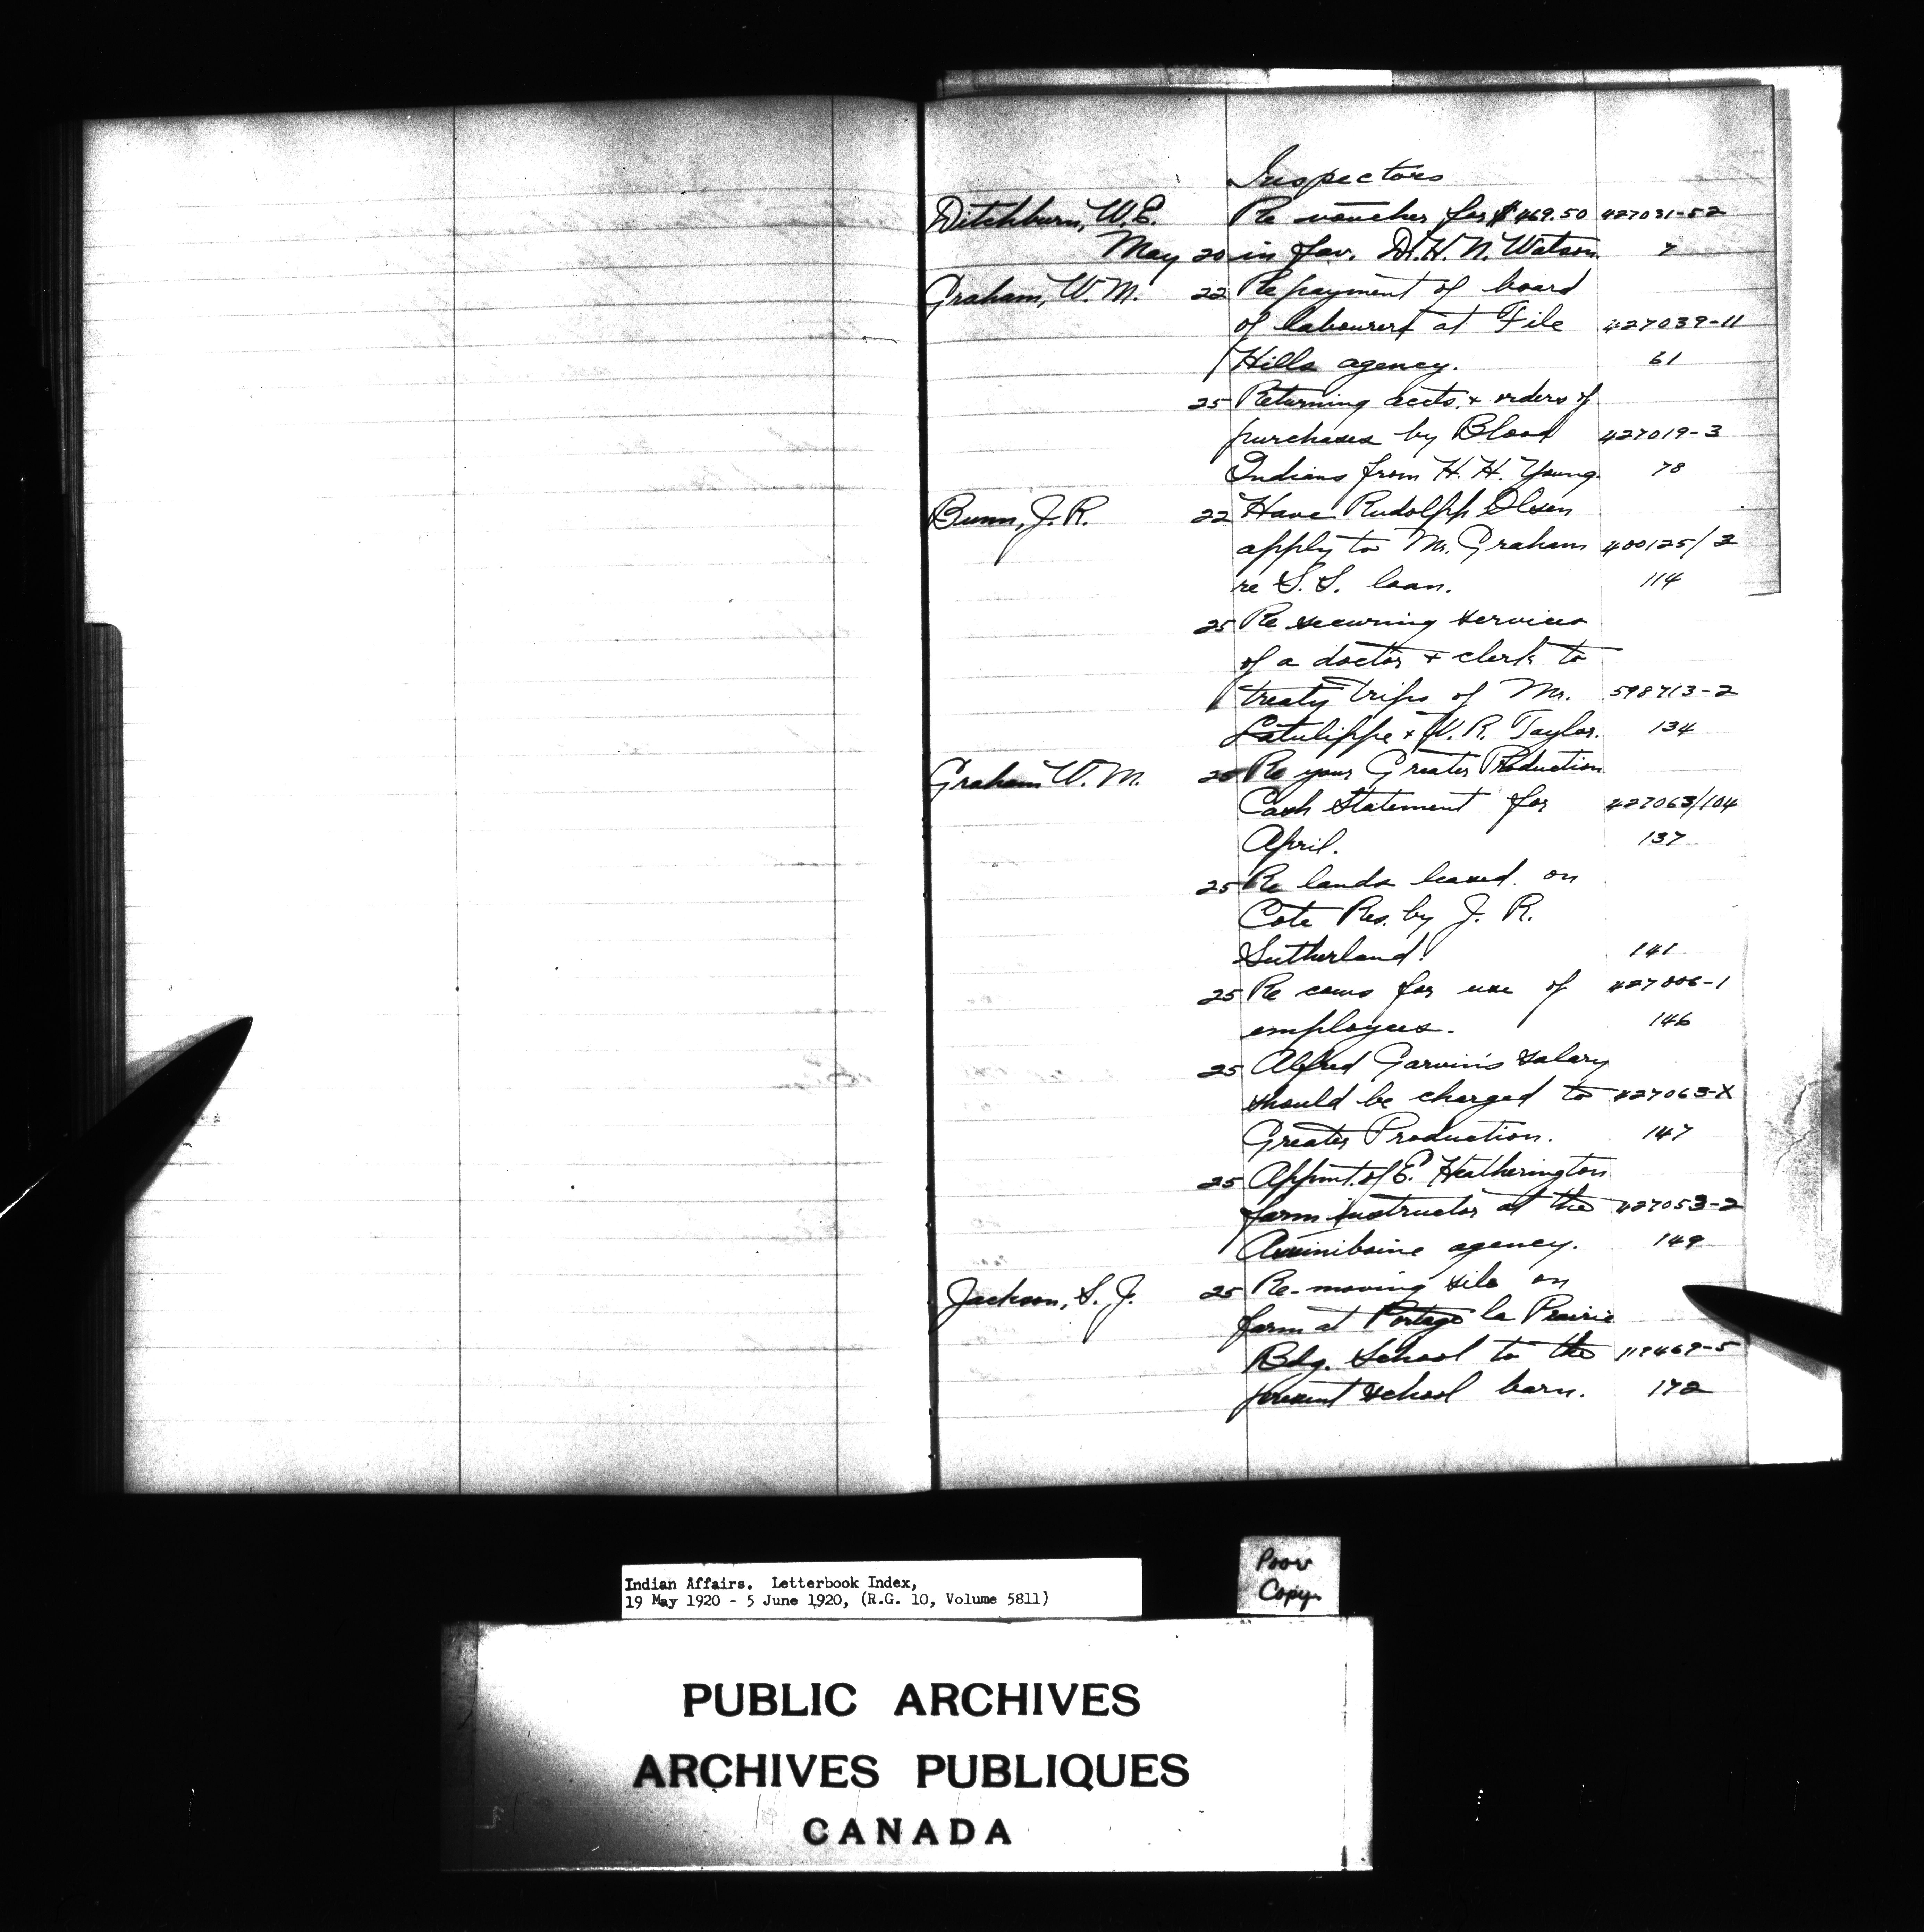 Inspectors
Ditchburn, W.E. Re voucher for $469.50 427031-52
May 20 in fav. Dr. H. N. Watson. 7
Graham, W. M. 22 Re payment of board
of labourers at File 427039-11
Hills agency. 61
25 Returning accts. + orders of
purchases by Blood 427019-3
Indians from H. H. Young. 78
Bunn, J. R. 22 Have Rudolph Olsen
apply to Mr. Graham 400125/3
re S. S. loan. 114
25 Re securing services
of a doctor + clerk to
treaty trips of Mr. 598713-2
Latulippe + W. R. Taylor. 134
Graham W. M. 25 Re your Greater Production
Cash Statement for 427063/104
April. 137
25 Re lands leased on
Cote Res. by J. R.
Sutherland. 141
25 Re cows for use of 427006-1
employees. 146
25 Alfred Garvin's salary
should be charged to 427063-X
Greater Production. 147
25 Appmt. of E. Heatherington
farm instructor at the 427053-2
Assiniboine agency. 149
Jackson, S. J. 25 Re-moving silo on
farm at Portage la Prairie
Bdg. School to the 119469-5
present school barn. 172
Poor
Copy.
Indian Affairs. Letterbook Index,
19 May 1920 - 5 June 1920, (R.G. 10, Volume 5811)
PUBLIC ARCHIVES
ARCHIVES PUBLIQUES
CANADA